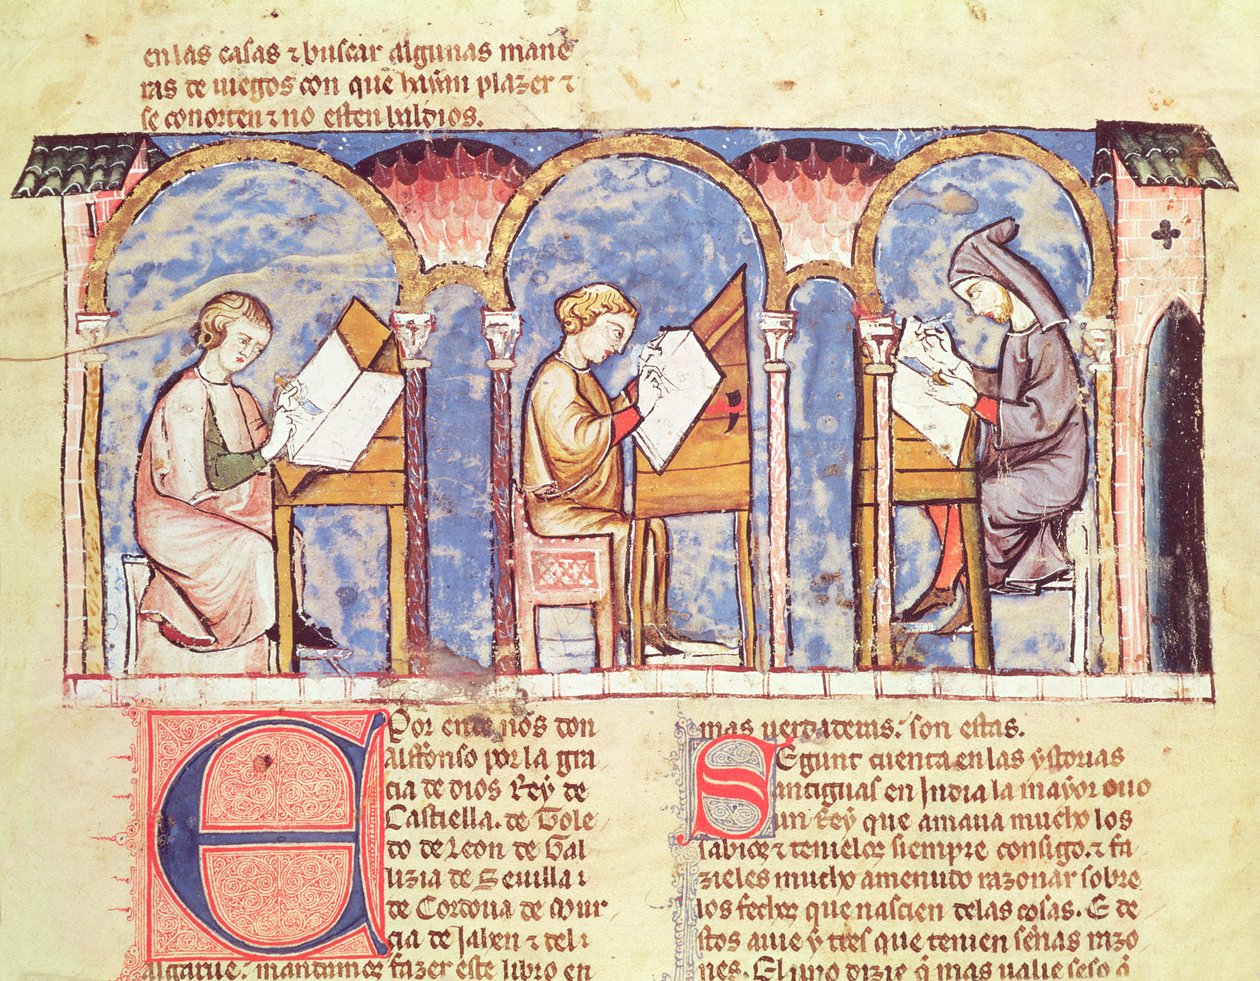 en las casas ⁊ buscar algunas mane
ras de iuegos con que hayan plazer ⁊
se conorten ⁊ no esten baldios.
E Por ende nos don
Alffonso por la gra
cia de dios Rey de
Castiella. de Tole
do de Leon de Gal
lizia de Seuilla ⁊
de Cordoua de Mur
cia de Jahen ⁊ del
algarue. mandamos fazer este libro en
mas uerdaderas. son estas.
Segunt cuenta en las ystorias
antiguas en India la mayor ouo
un Rey que amaua mucho los
sabios ⁊ tenielos siempre consigo. ⁊ fa
zieles mucho amenudo razonar sobre
los fechos que nascien delas cosas. E de
stos auie y tres que tenien sennas razo
nes. El uno dizie q̃ mas ualie seso q̃